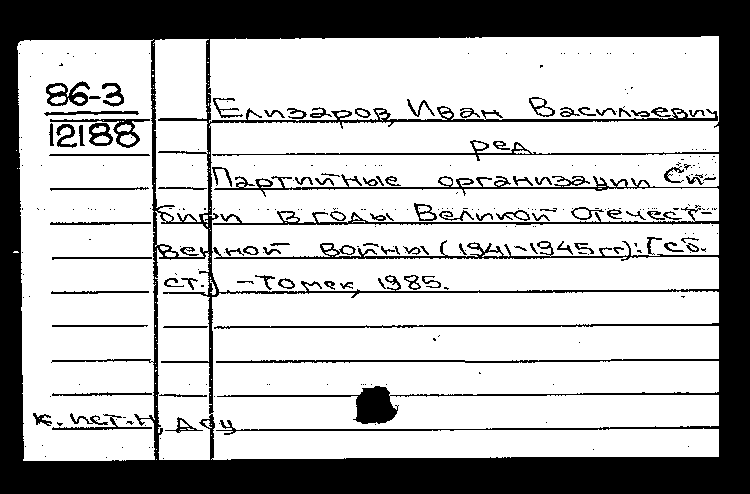 86-3
12188
Елизаров, Иван Васильевич,
ред
Партийные организации Си-
бири в годы Великой Отечест-
венной войны (1941-1945 гг): [сб.
ст.] - Томск, 1985.
к. ист. н,